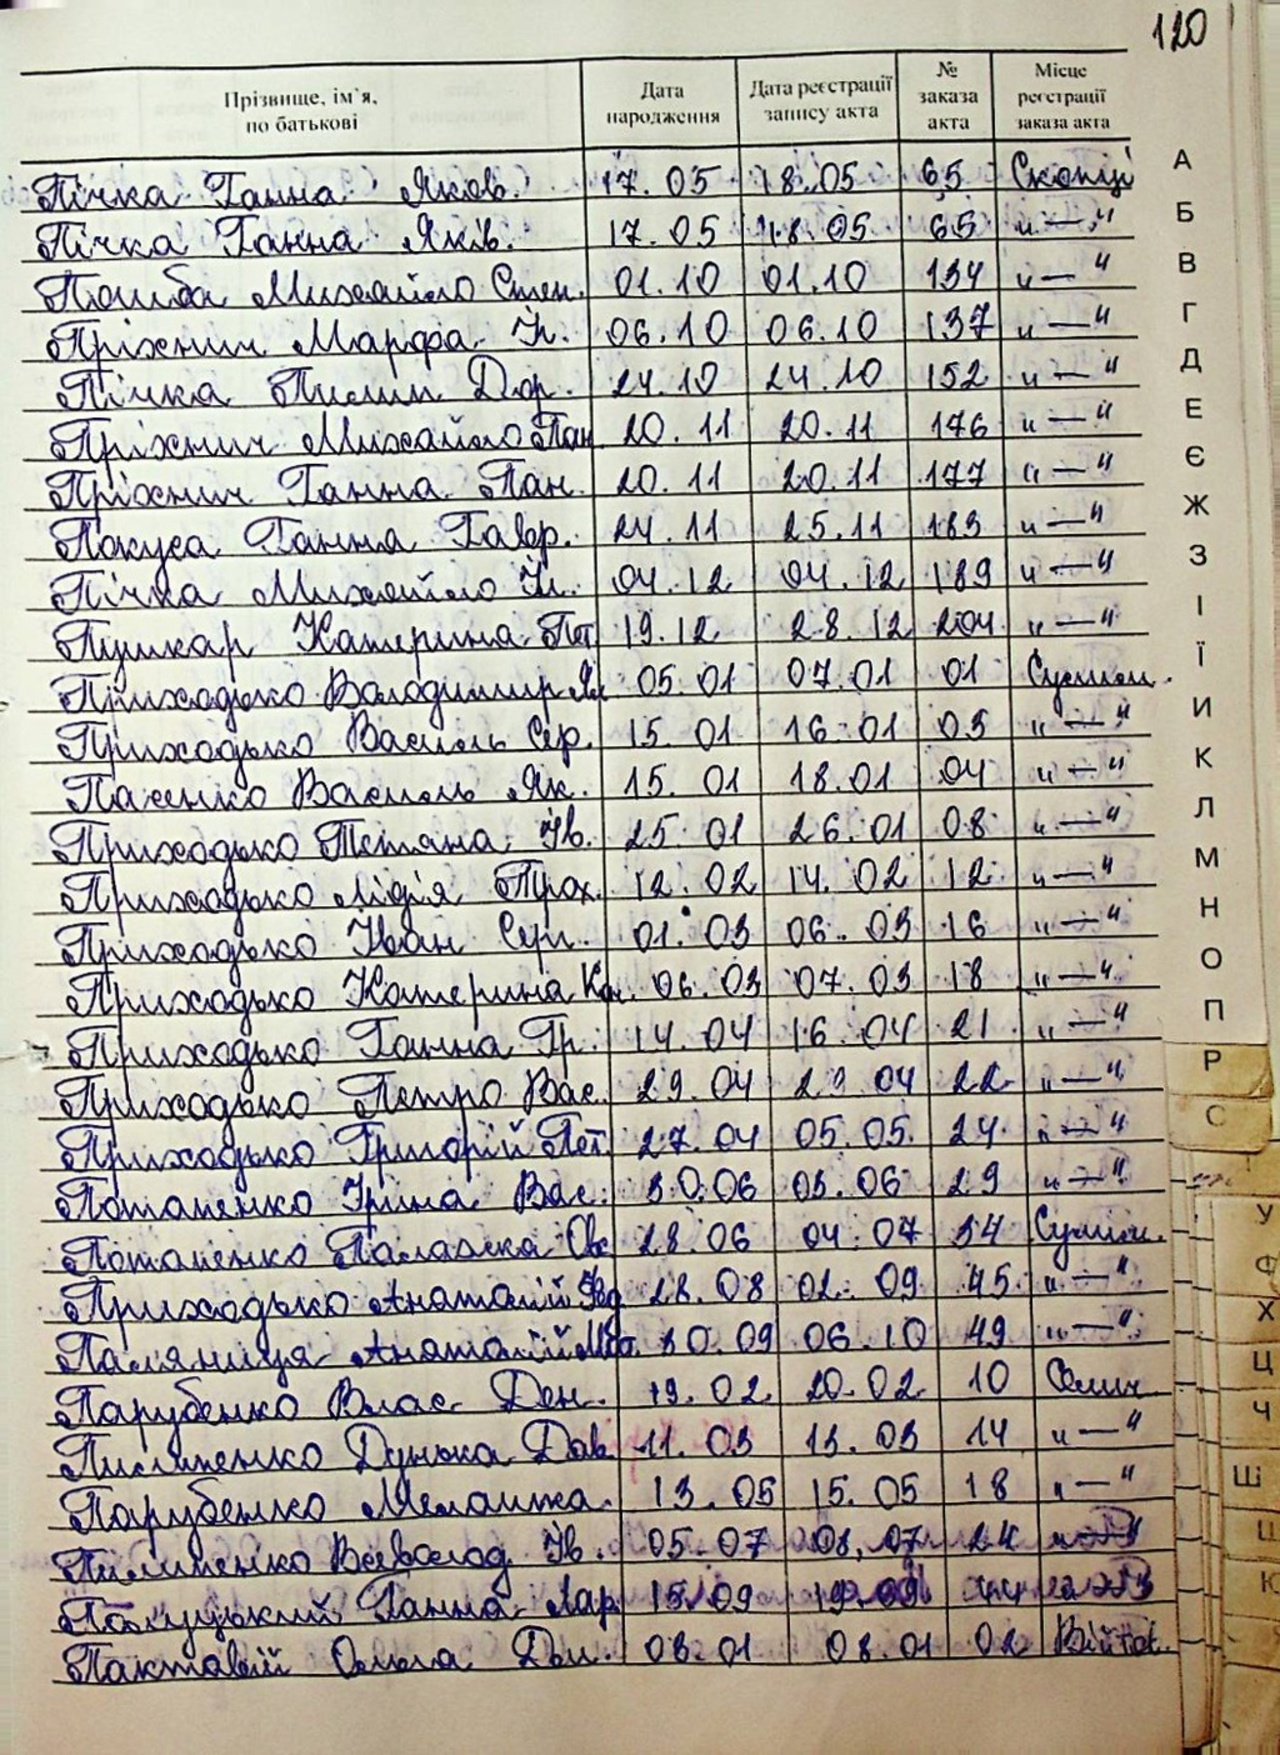 120
Прізвище, ім`я, по батькові Дата народження Дата реєстрації запису акта № заказа акта Місце реєстрації заказа акта
Пічка Ганна Яков. 17.05 18.05 65 Скопці
Пічка Ганна Яків. 17.05 18.05 65 "—"
Михайло Степ. 01.10 01.10 134 "—"
Пріхнич Марфа Іл. 06.10 06.10 137 "—"
Пічка Пилип Дор. 24.10 24.10 152 "—"
Пріхнич Михайло Пан 20.11 20.11 176 "—"
Пріхнич Ганна Пан. 20.11 20.11 177 "—"
Покуса Ганна Гавр. 24.11 25.11 183 "—"
Пічка Михайло Іл. 04.12 04.12 189 "—"
Пушкар Катерина Пет 19.12 28.12 204 "—"
Приходько Володимир Як 05.01 07.01 01
Приходько Василь Сер. 15.01 16.01 03 "—"
Пасенко Василь Як. 15.01 18.01 04 "—"
Приходько Тетяна Ів. 25.01 26.01 08 "—"
Приходько Лідія Прох. 12.02 14.02 12 "—"
Приходько Іван Сер. 01.03 06.03 16 "—"
Приходько Катерина Кон. 06.03 07.03 18 "—"
Приходько Ганна Гр. 14.04 16.04 21 "—"
Приходько Петро Вас. 29.04 29.04 22 "—"
Приходько Григорій Пет. 27.04 05.05 24 "—"
Потапенко Іріна Вас. 30.06 03.06 29 "—"
Потапенко Палажка Ов 28.06 04.07 34
Приходько Анатолій 28.08 02.09 45 "—"
Паляниця Анатолій 30.09 06.10 49 "—"
Парубенко Влас Ден. 19.02 20.02 10 Селич
Пилипенко Дунька Дав 11.03 13.03 14 "—"
Парубенко Меланка 13.05 15.05 18 "—"
Пилипенко Всеволод Ів. 05.07 08.07 24 "—"
Ганна Лар 15.09 19.09 44
Пактавій Ольга Дем. 08.01 08.01 02 Війтов.
А
Б
В
Г
Д
Е
Є
Ж
З
І
Ї
И
К
Л
М
Н
О
П
Р
С
У
Ф
Х
Ц
Ч
Ш
Щ